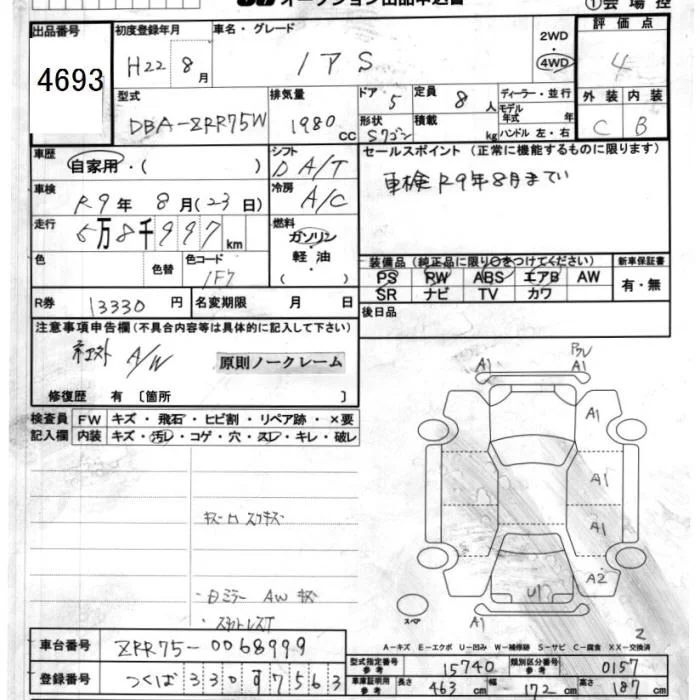 オークション出品申込書
①会場控
出品番号 4693
初度登録年月 H22 8月
車名・グレード ノア S
2WD ・ 4WD
評価点 4
外装 C 内装 B
型式 DBA-ZRR75W
排気量 1980 cc
ドア 5 定員 8 人
形状 Sワゴン 積載 kg
ディーラー・並行
モデル年式 年
ハンドル 左・右
車歴 自家用・( )
シフト D A/T
冷房 A/C
セールスポイント (正常に機能するものに限ります)
車検 R9年8月まで
車検 R9年 8月(23日)
走行 5万8千997 km
燃料 ガソリン・軽油 ( )
色 色替 色コード 1F7
装備品 (純正品に限り○をつけてください)
PS RW ABS エアB AW
SR ナビ TV カワ
新車保証書 有・無
R券 13330 円 名変期限 月 日
後日品
注意事項申告欄 (不具合内容等は具体的に記入して下さい)
A/W
原則ノークレーム
修復歴 有 〔箇所 〕
検査員記入欄
FW キズ・飛石・ヒビ割・リペア跡・×要
内装 キズ・汚レ・コゲ・穴・スレ・キレ・破レ
A1 A1
A1
A1
A1
A2
U1
A1
スペア
A-キズ E-エクボ U-凹み W-補修跡 S-サビ C-腐食 XX-交換済
車台番号 ZRR75-0068999
型式指定番号 参考 15740 類別区分番号 参考 0157
登録番号 つくば 330 す 7563
車庫証明用 参考 長さ 463 cm 幅 172 cm 高さ 187 cm